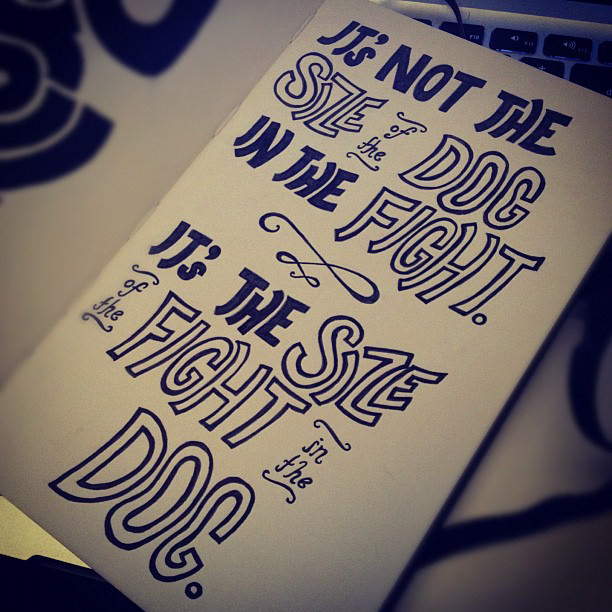 IT'S NOT THE
SIZE of the DOG
IN THE FIGHT.
IT'S THE SIZE
of the FIGHT in the
DOG.